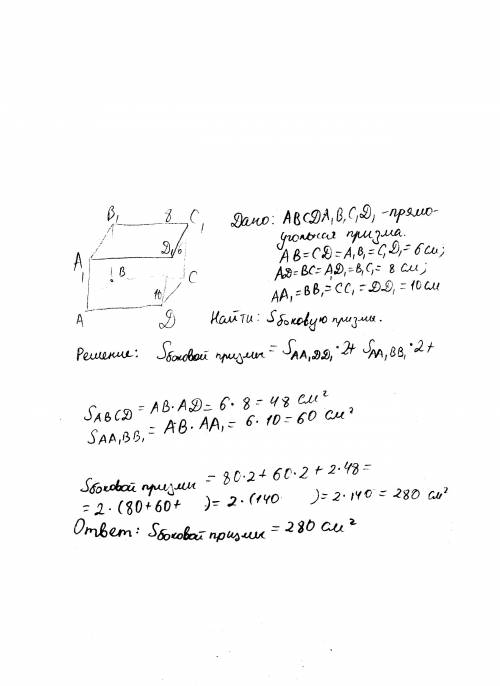 B₁ 8 C₁
A₁ D₁ 6
B C
10
A D
Дано: ABCDA₁B₁C₁D₁ - прямо-
угольная призма.
AB = CD = A₁B₁ = C₁D₁ = 6 см;
AD = BC = A₁D₁ = B₁C₁ = 8 см;
AA₁ = BB₁ = CC₁ = DD₁ = 10 см
Найти: Sбоковую призмы.
Решение: Sбоковой призмы = SAA₁DD₁ · 2 + SAA₁BB₁ · 2 +
SABCD = AB · AD = 6 · 8 = 48 см²
SAA₁BB₁ = AB · AA₁ = 6 · 10 = 60 см²
Sбоковой призмы = 80 · 2 + 60 · 2 + 2 · 48 =
= 2 · (80 + 60 + ) = 2 · (140 ) = 2 · 140 = 280 см²
Ответ: Sбоковой призмы = 280 см²